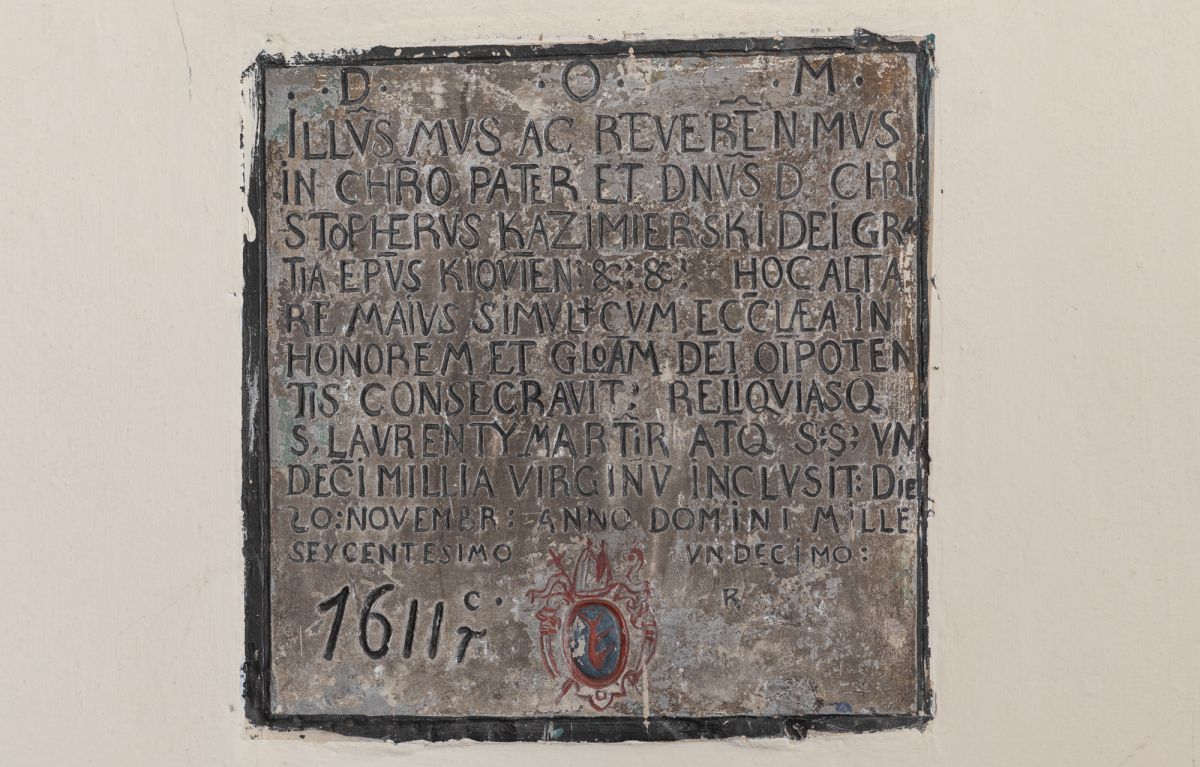 · · D · · O · · M ·
ILLVS̃MVS AC REVERẼNMVS
IN CHR̃O PATER ET DNVS̃ D. CHRI
STOPHERVS KAZIMIERSKI DEI GRA
TIA EPṼS KIOVIEN: &: &: HOC ALTA
RE MAIVS SIMVL † CVM ECC̃LÆA IN
HONOREM ET GLOÃM DEI OĨPOTEN
TIS CONSECRAVIT; RELIQVIASQ
S. LAVRENTY MARTĨR ATQ S:S: VN
DECĨ MILLIA VIRGINV INCLVSIT: DIE
20: NOVEMBR: ANNO DOMINI MILLE
SEXCENTESIMO VNDECIMO:
1611 C. T R